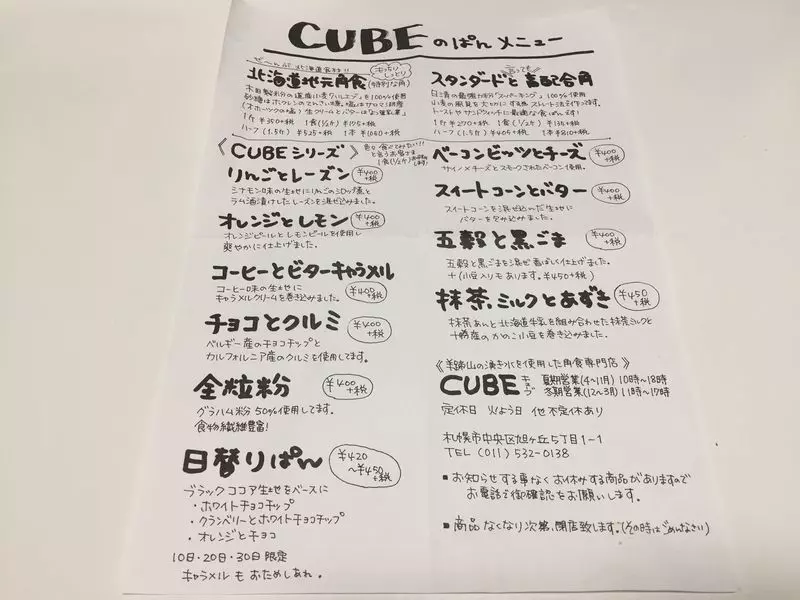 CUBEのぱんメニュー
ぜ〜んぶ北海道食材!!
北海道地元角食
(特別な角)
もっちり
しっとり
木田製粉の道産小麦"ハルエゾ"を100%使用
砂糖はホクレンのてんさい糖、塩はサロマ湖産
(オホーツクの塩) 生クリームとバターはよつ葉乳業
1斤 ¥350+税 1食(1/2斤) ¥175+税
ハーフ(1.5斤) ¥525+税 1本 ¥1050+税
スタンダードと言っても高配合角
日清の最強力粉"スーパーキング"100%使用
小麦の風味を大切にするストレート法で作ってます。
トーストやサンドウィッチに最適な食ぱんです!
1斤 ¥270+税 1食(1/2斤) ¥135+税
ハーフ(1.5斤) ¥405+税 1本 ¥810+税
《CUBEシリーズ》
色々食べてみたい!!
と言うお客さま
1食(1/2斤)
りんごとレーズン ¥400+税
シナモン味の生地にりんごのシロップ煮と
ラム酒漬けしたレーズンを混ぜ込みました。
オレンジとレモン ¥400+税
オレンジピールとレモンピールを使用し
爽やかに仕上げました。
コーヒーとビターキャラメル
コーヒー味の生地に
キャラメルクリームを巻き込みました。
¥400+税
チョコとクルミ ¥400+税
ベルギー産のチョコチップと
カルフォルニア産のクルミを使用してます。
全粒粉 ¥400+税
グラハム粉50%使用してます。
食物繊維豊富!
日替りぱん ¥420〜¥450+税
ブラックココア生地をベースに
・ホワイトチョコチップ
・クランベリーとホワイトチョコチップ
・オレンジとチョコ
10日・20日・30日限定
キャラメルもおためしあれ。
ベーコンビッツとチーズ ¥400+税
サイノメチーズとスモークされたベーコン使用。
スイートコーンとバター ¥400+税
スイートコーンを混ぜ込んだ生地に
バターを包み込みました。
五穀と黒ごま ¥400+税
五穀と黒ごまを混ぜ香ばしく仕上げました。
+(小豆入りもあります。¥450+税)
抹茶、ミルクとあずき ¥450+税
抹茶あんと北海道牛乳を組み合わせた抹茶ミルクと
十勝産のかのこ小豆を巻き込みました。
《羊蹄山の湧き水を使用した角食専門店》
CUBE
キューブ
夏期営業(4〜11月) 10時〜18時
冬期営業(12〜3月) 11時〜17時
定休日 火よう日 他不定休あり
札幌市中央区旭ヶ丘5丁目1-1
TEL (011) 532-0138
■お知らせする事なくお休みする商品がありますので
お電話で御確認をお願いします。
■商品なくなり次第、閉店致します。(その時はごめんなさい)